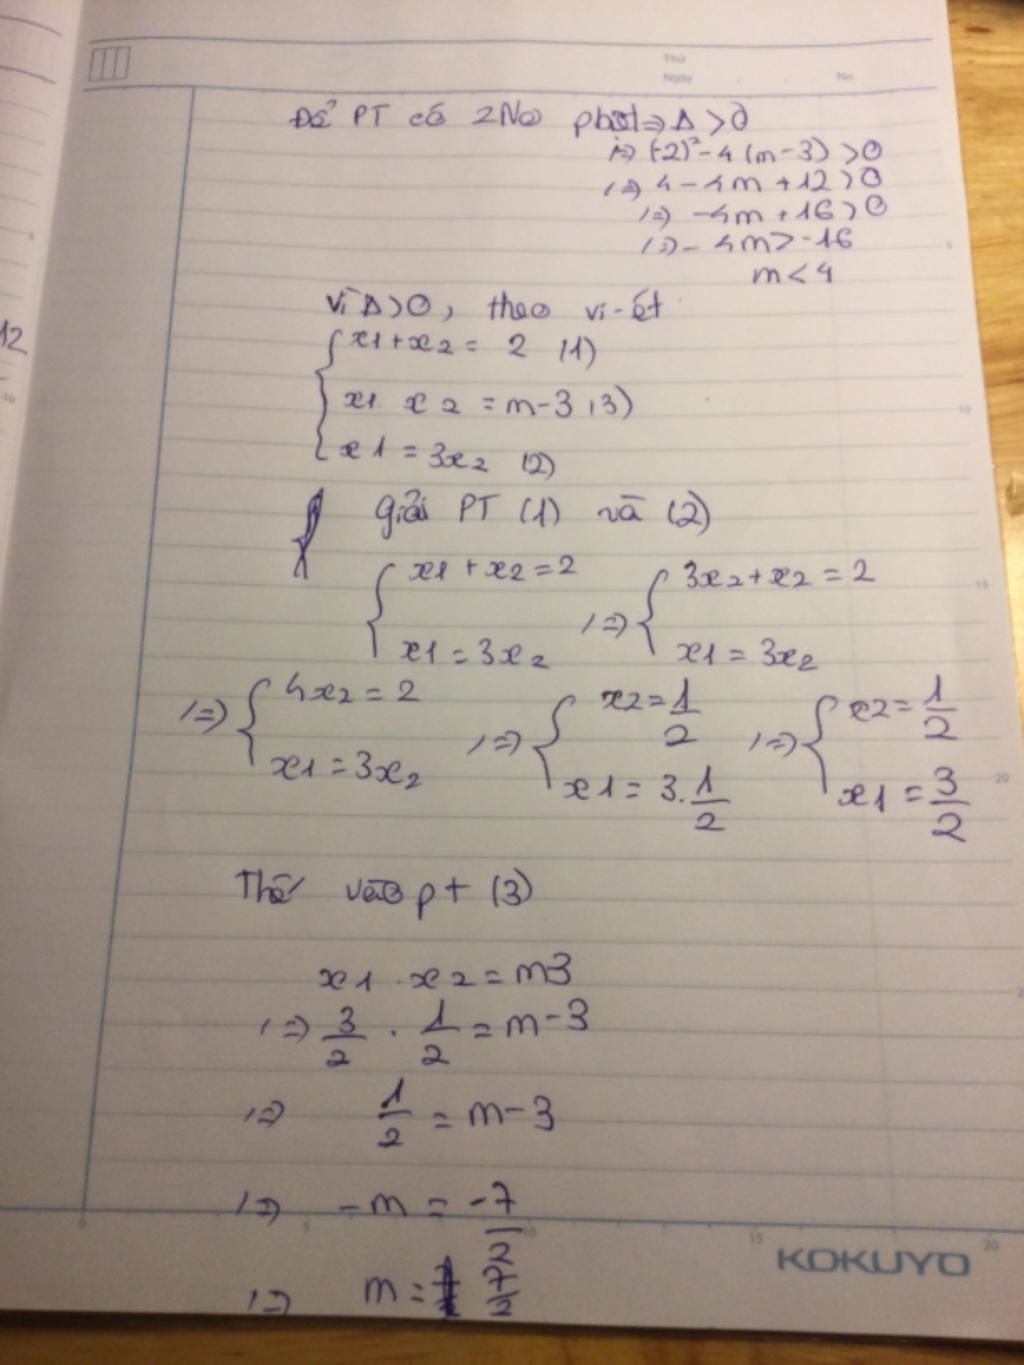 Thứ
Ngày No
Để PT có 2No pbiệt => Δ > 0
<=> (-2)² - 4 (m - 3) > 0
<=> 4 - 4m + 12 > 0
<=> -4m + 16 > 0
<=> - 4m > -16
m < 4
Vì Δ > 0, theo vi-ét
x1 + x2 = 2 (1)
x1 . x2 = m - 3 (3)
x1 = 3x2 (2)
giải PT (1) và (2)
{ x1 + x2 = 2 <=> { 3x2 + x2 = 2
x1 = 3x2 x1 = 3x2
<=> { 4x2 = 2 <=> { x2 = 1/2 <=> { x2 = 1/2
x1 = 3x2 x1 = 3 . 1/2 x1 = 3/2
Thế vào pt (3)
x1 . x2 = m3
<=> 3/2 . 1/2 = m - 3
<=> 1/2 = m - 3
<=> -m = -7/2
<=> m = 7/2
KOKUYO
12
5
10
15
20
0
5
10
15
20